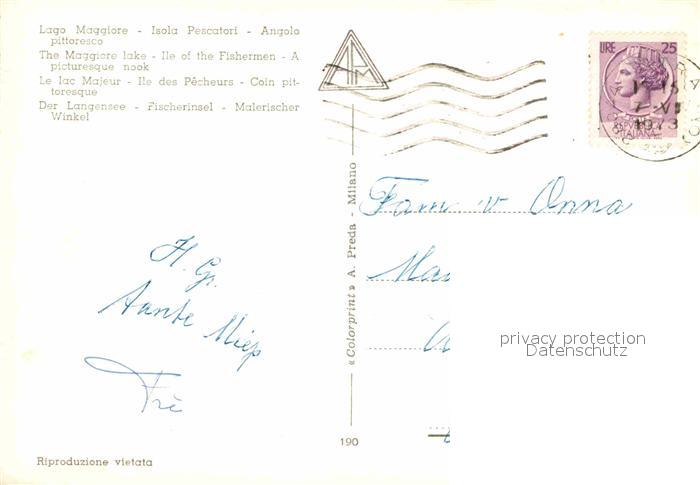 Lago Maggiore - Isola Pescatori - Angolo
pittoresco
The Maggiore lake - Ile of the Fishermen - A
picturesque nook
Le lac Majeur - Ile des Pêcheurs - Coin pit-
toresque
Der Langensee - Fischerinsel - Malerischer
Winkel
LIRE 25
1973
ITALIANA
H. Gr.
Tante Miep
Fam v Onna
Ma
privacy protection
Datenschutz
«Colorprint» A. Preda - Milano
190
Riproduzione vietata